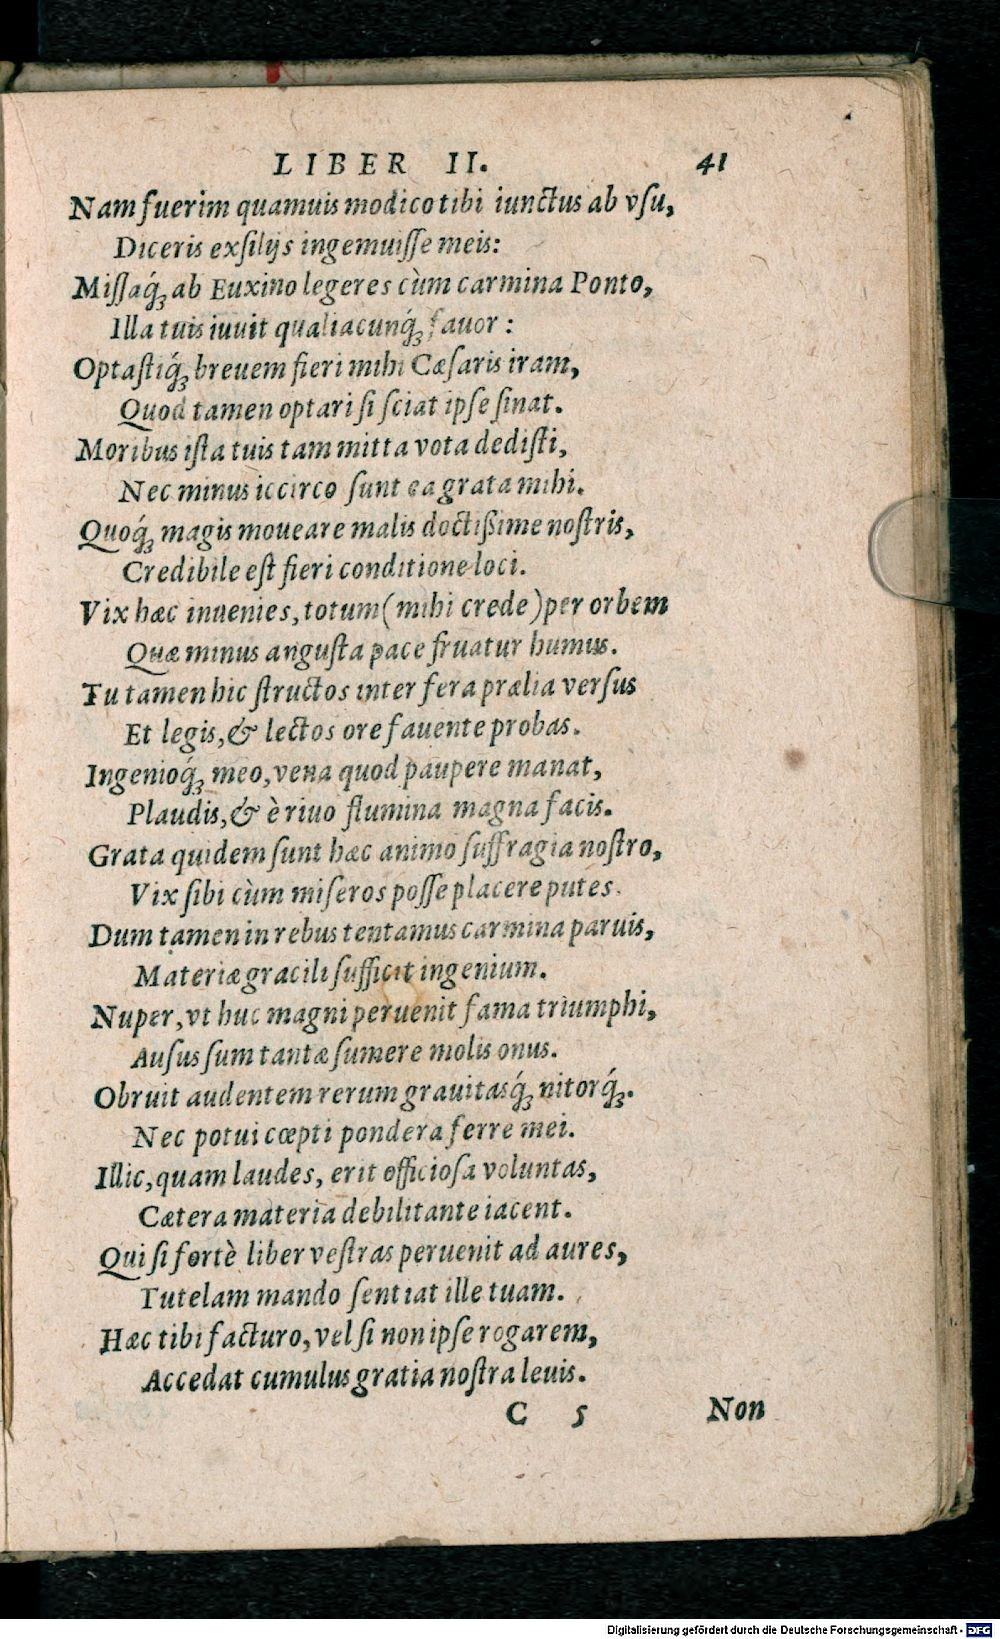 LIBER II. 41
Nam fuerim quamuis modico tibi iunctus ab vsu,
Diceris exſilijs ingemuiſſe meis:
Miſſaq́ꝫ ab Euxino legeres cùm carmina Ponto,
Illa tuis iuuit qualiacunq́ꝫ fauor:
Optaſtiq́ꝫ breuem fieri mihi Cæſaris iram,
Quod tamen optari ſi ſciat ipſe ſinat.
Moribus iſta tuis tam mitta vota dediſti,
Nec minus iccirco ſunt ea grata mihi.
Quoq́ꝫ magis moueare malis doctißime noſtris,
Credibile eſt fieri conditione loci.
Vix hæc inuenies, totum (mihi crede) per orbem
Quæ minus anguſta pace fruatur humus.
Tu tamen hic ſtructos inter fera prælia verſus
Et legis, & lectos ore fauente probas.
Ingenioq́ꝫ meo, vena quod paupere manat,
Plaudis, & è riuo flumina magna facis.
Grata quidem ſunt hæc animo ſuffragia noſtro,
Vix ſibi cùm miſeros poſſe placere putes.
Dum tamen in rebus tentamus carmina paruis,
Materiæ gracili ſufficit ingenium.
Nuper, vt huc magni peruenit fama triumphi,
Auſus ſum tantæ ſumere molis onus.
Obruit audentem rerum grauitasq́ꝫ nitorq́ꝫ.
Nec potui cœpti pondera ferre mei.
Illic, quam laudes, erit officioſa voluntas,
Cætera materia debilitante iacent.
Qui ſi fortè liber veſtras peruenit ad aures,
Tutelam mando ſentiat ille tuam.
Hæc tibi facturo, vel ſi non ipſe rogarem,
Accedat cumulus gratia noſtra leuis.
C 5 Non
Digitalisierung gefördert durch die Deutsche Forschungsgemeinschaft - DFG